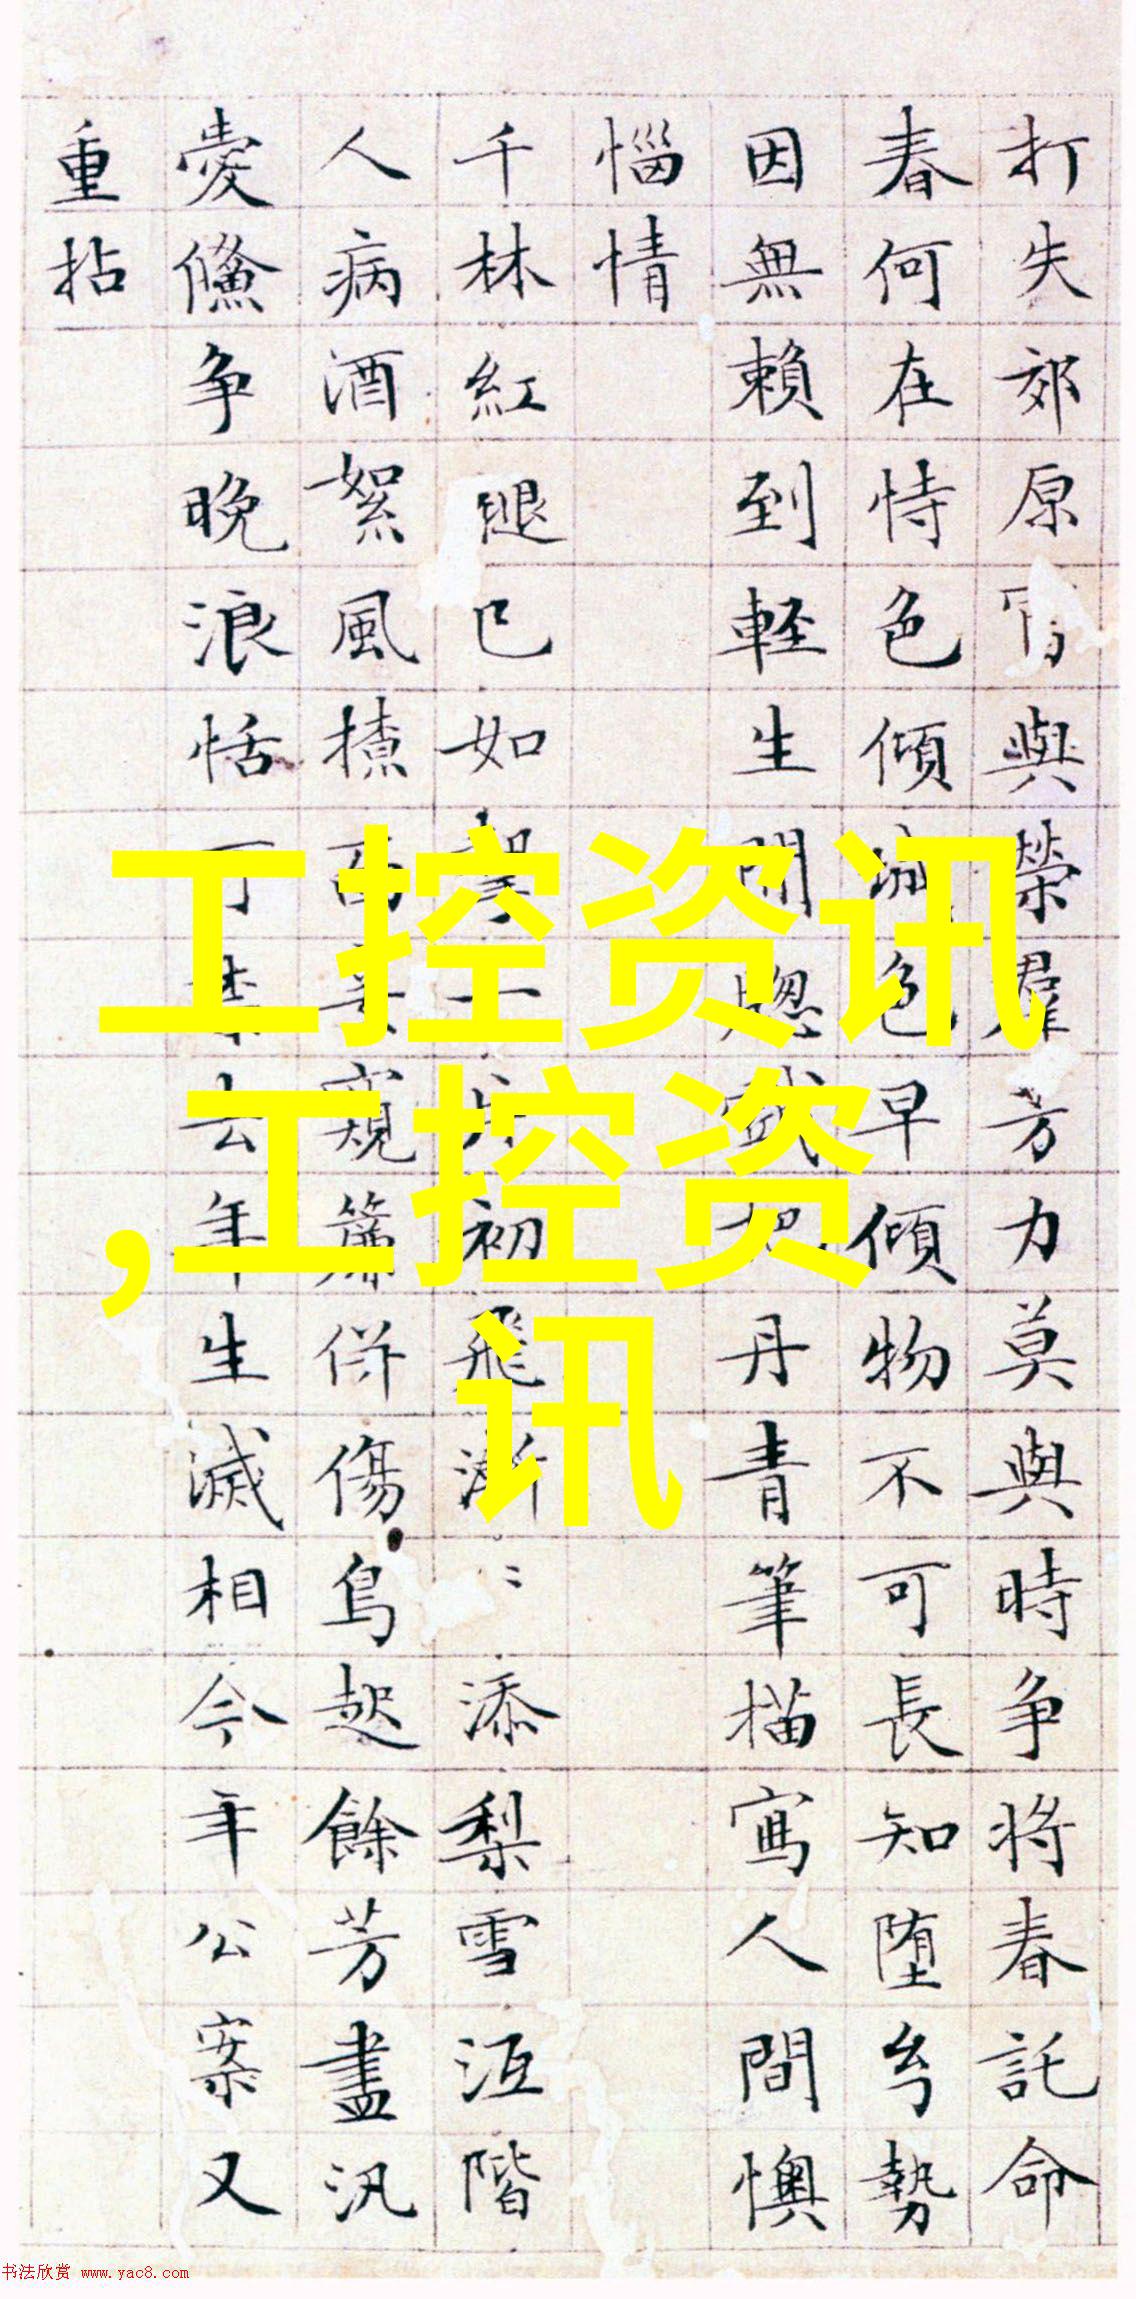 打失郊原與榮羣芳力莫與時争将春託命
春何在恃色傾城色早傾物不可長知堕勢
因無頼到軽生間愡試把丹青筆描寫人間懊
惱情
千林紅腿已如初飛漸〻添梨雪沍階
人病酒絮風揸西窺簾併傷鳥起餘芳盡汎
愛儵争晚浪恬可禁去年生滅相今年公案又
重拈
工控资讯
,工控资
讯
书法欣赏 www.yac8.com